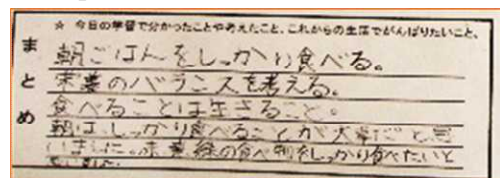 ☆ 今日の学習で分かったことや考えたこと、これからの生活でがんばりたいこと、
まとめ
朝ごはんをしっかり食べる。
栄養のバランスを考える。
食べることは生きること。
朝は、しっかり食べることが大事だと思
いました。赤黄緑の食べ物をしっかり食べたいと